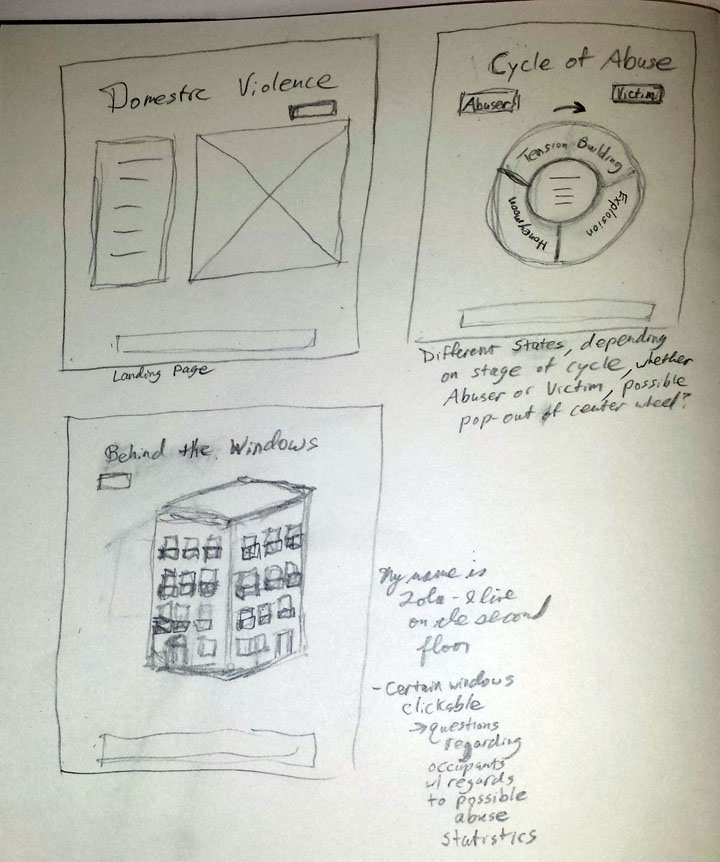 Domestic Violence
Landing Page
Cycle of Abuse
Abuser
Victim
Tension Building
Explosion
Honeymoon
Different States, depending
on stage of cycle, whether
Abuser or Victim, possible
pop-out of center wheel?
Behind the Windows
My name is
Lola - I live
on the second
floor
- Certain windows
clickable
→ questions
regarding
occupants
w/ regards
to possible
abuse
statistics